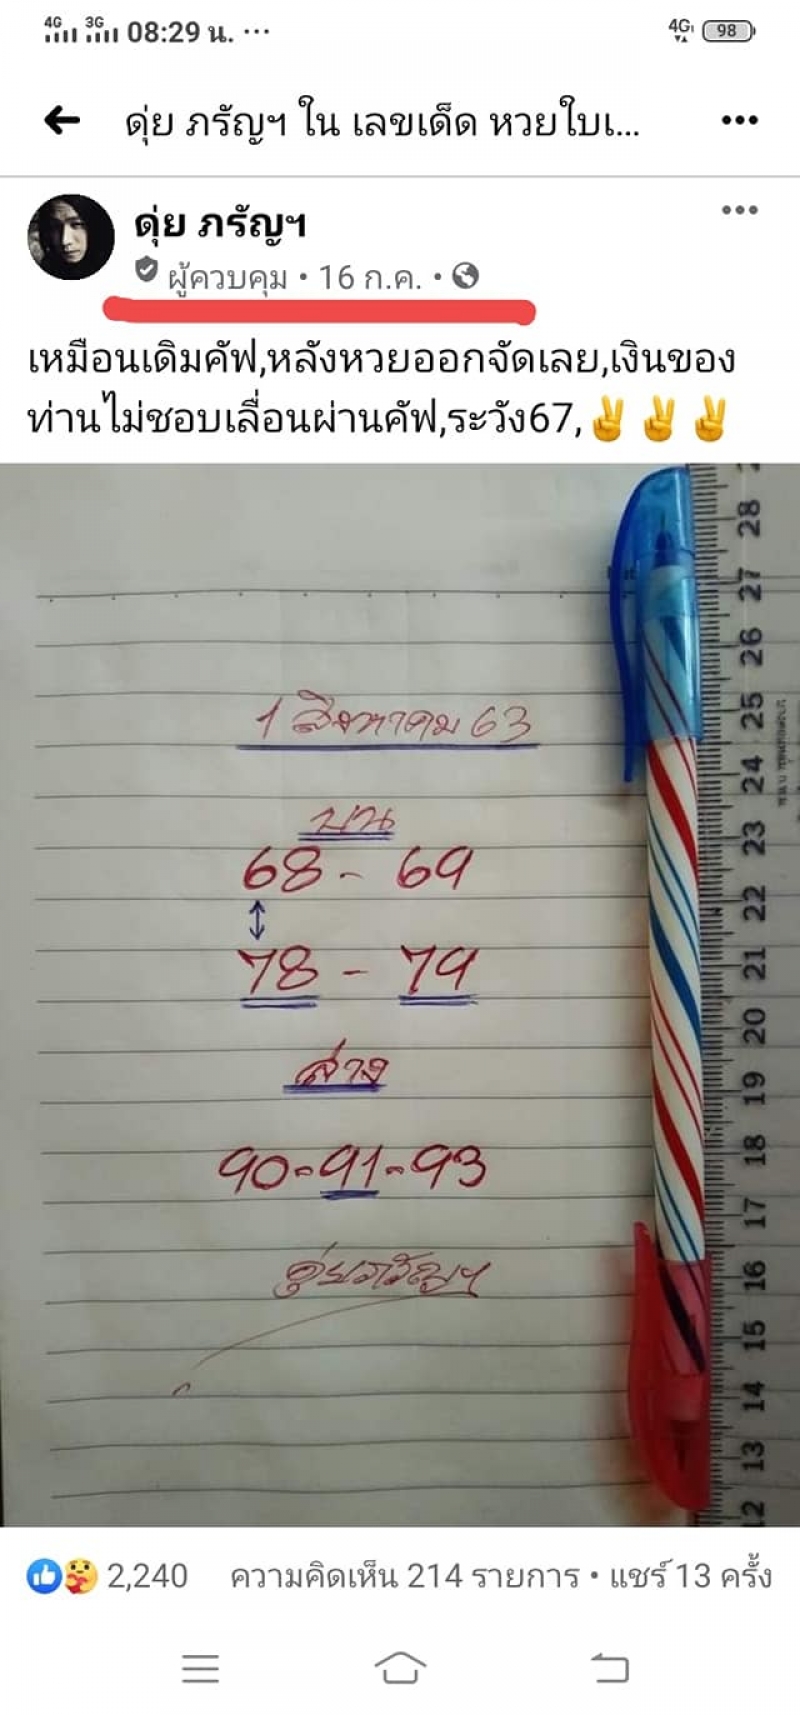 4G 3G 08:29 น. ... 4G 98
ดุ่ย ภรัญฯ ใน เลขเด็ด หวยใบเ...
ดุ่ย ภรัญฯ
ผู้ควบคุม • 16 ก.ค. •
เหมือนเดิมคัฟ,หลังหวยออกจัดเลย,เงินของ
ท่านไม่ชอบเลื่อนผ่านคัฟ,ระวัง67,✌✌✌
1 สิงหาคม 63
บน
68 - 69
↕
78 - 79
ล่าง
90-91-93
ดุ่ยภรัญฯ
28
27
26
25
24
23
22
21
20
19
18
17
16
15
14
13
12
2,240 ความคิดเห็น 214 รายการ • แชร์ 13 ครั้ง